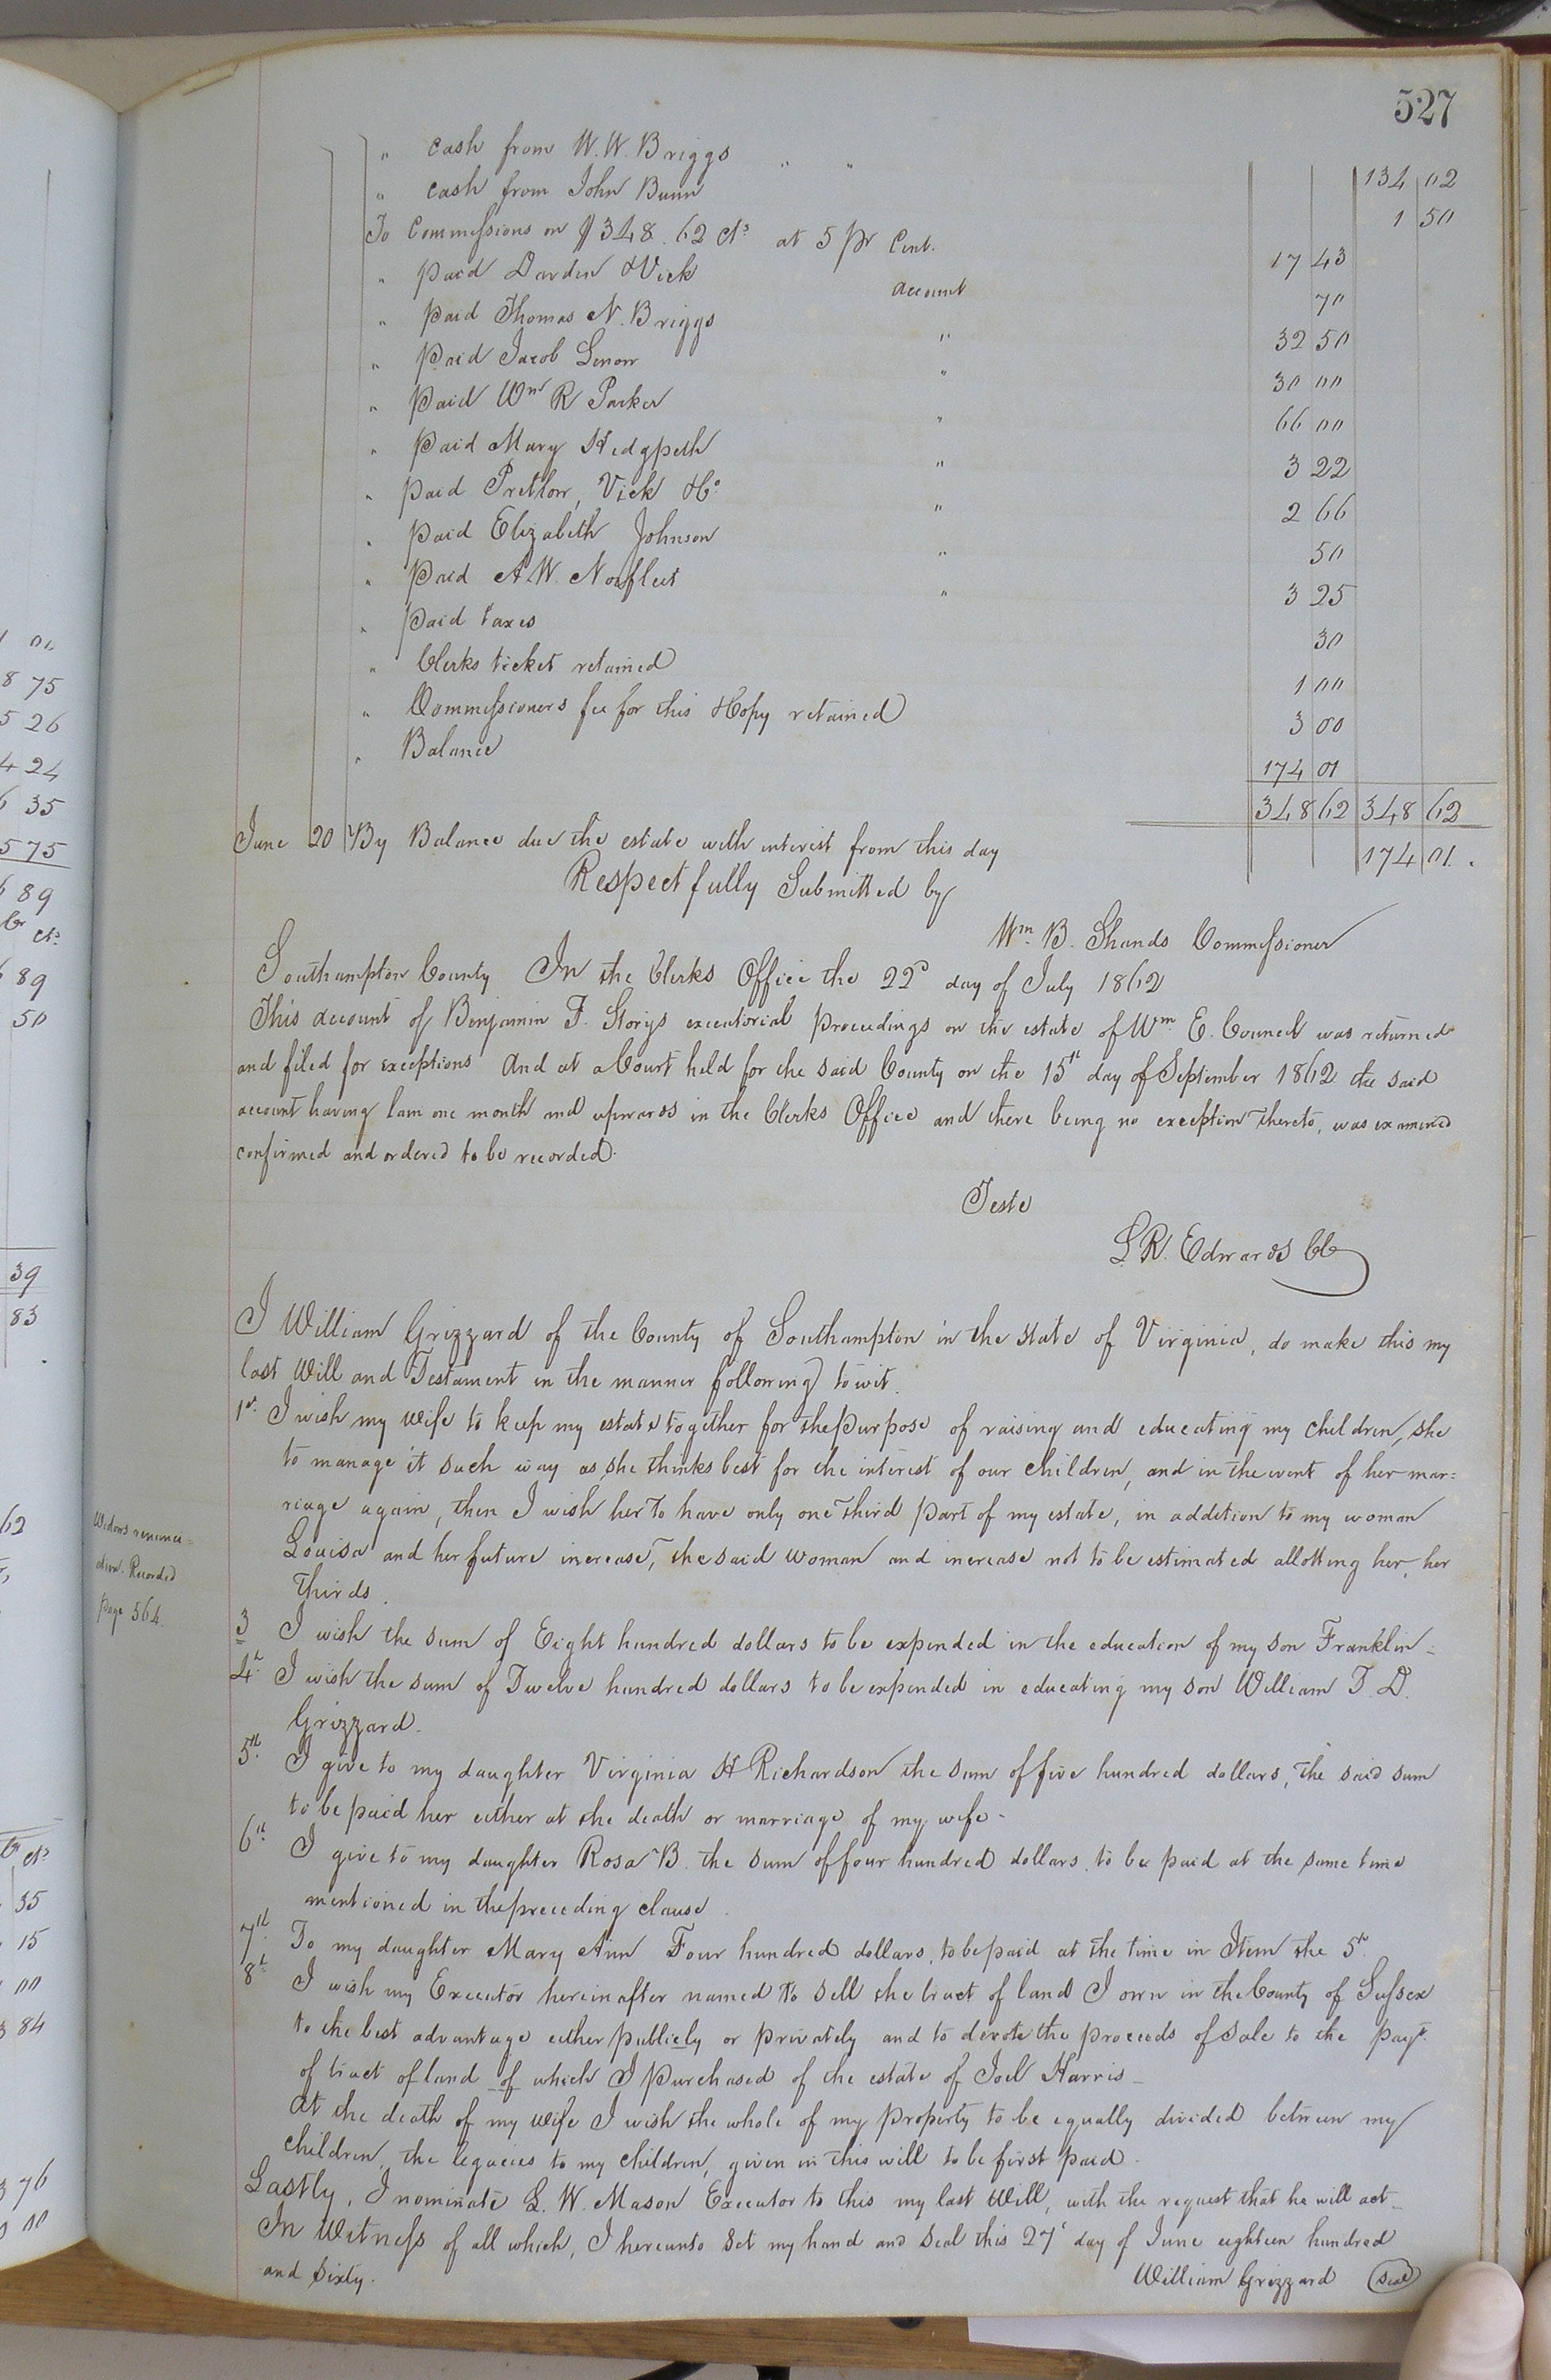 527
" cash from W. W. Briggs " " 134 02
" cash from John Bunn 1 50
To Commissions on $348.62 cts at 5 pr Cent. 17 43
" paid Darden & Vick account 70
" paid Thomas N. Briggs " 32 50
" paid Jacob Senow " 30 00
" paid Wm R Parker " 66 00
" paid Mary Hedgpeth " 3 22
" paid Pretlow, Vick & Co " 2 66
" paid Elizabeth Johnson " 50
" paid A. W. Norfleet " 3 25
" paid taxes 30
" Clerks ticket retained 1 00
" Commissioners fee for this & Copy retained 3 00
" Balance 174 01
348 62 348 62
June 20 By Balance due the estate with interest from this day 174 01.
Respectfully Submitted by
Wm. B. Shands Commissioner
Southampton County In the Clerks Office the 22d day of July 1862
This account of Benjamin F. Storys executorial proceedings on the estate of Wm E. Council was returned
and filed for exceptions And at a Court held for the said County on the 15th day of September 1862 the said
account having lain one month and upwards in the Clerks Office and there being no exception thereto, was examined
confirmed and ordered to be recorded.
Teste
L. R. Edwards CC
I William Grizzard of the County of Southampton in the State of Virginia, do make this my
last Will and Testament in the manner following to wit.
1st. I wish my wife to keep my estate together for the purpose of raising and educating my children, she
to manage it such way as she thinks best for the interest of our children, and in the event of her mar=
riage again, then I wish her to have only one third part of my estate, in addition to my woman
Louisa and her future increase, the said woman and increase not to be estimated allotting her, her
thirds.
Widows renunci=
ation. Recorded
page 564.
3 I wish the sum of Eight hundred dollars to be expended in the education of my son Franklin -
4th. I wish the sum of Twelve hundred dollars to be expended in educating my son William T. D.
Grizzard.
5th. I give to my daughter Virginia H Richardson the sum of five hundred dollars, the said sum
to be paid her either at the death or marriage of my wife -
6th. I give to my daughter Rosa B. the sum of four hundred dollars, to be paid at the same time
mentioned in the preceding clause.
7th. To my daughter Mary Ann Four hundred dollars, to be paid at the time in Item the 5th.
8th. I wish my Executor hereinafter named to sell the tract of land I own in the County of Sussex
to the best advantage either publicly or privately and to devote the proceeds of sale to the payt.
of tract of land of which I purchased of the estate of Joel Harris -
At the death of my wife I wish the whole of my property to be equally divided between my
children, the legacies to my children, given in this will to be first paid.
Lastly, I nominate L. W. Mason Executor to this my last Will, with the request that he will act -
In Witness of all which, I hereunto set my hand and seal this 27th day of June eighteen hundred
and sixty.
William Grizzard Seal